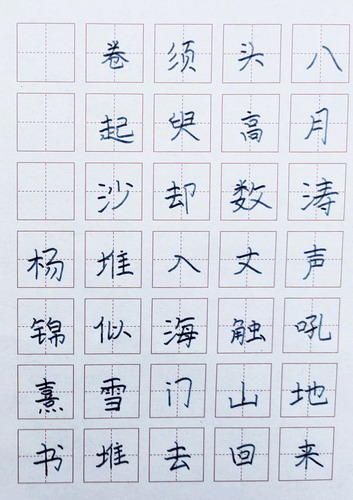 八月涛声吼地来
头高数丈触山回
须臾却入海门去
卷起沙堆似雪堆
杨锦熹书